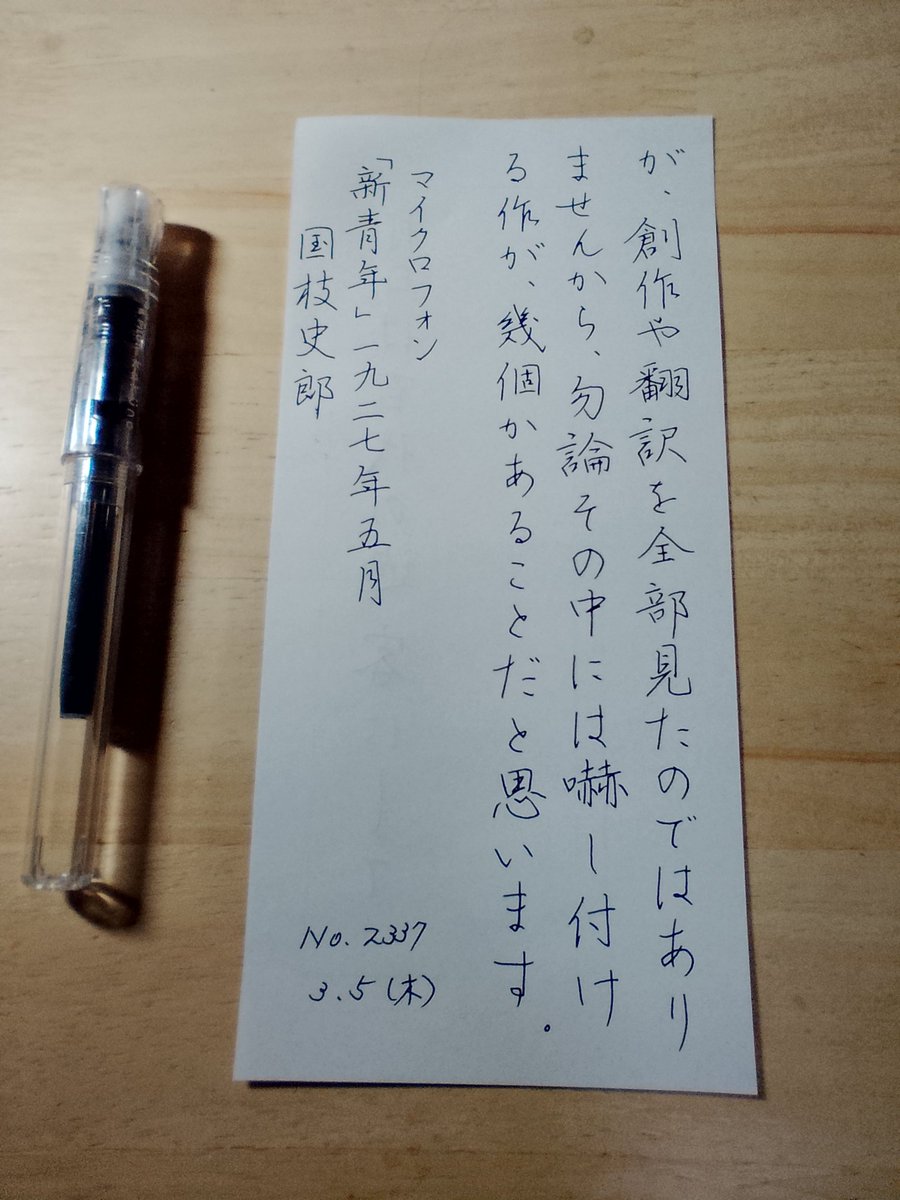 が、創作や翻訳を全部見たのではあり
ませんから、勿論その中には嚇し付け
る作が、幾個かあることだと思います。
マイクロフォン
「新青年」一九二七年五月
国枝史郎
No. 2337
3.5(木)